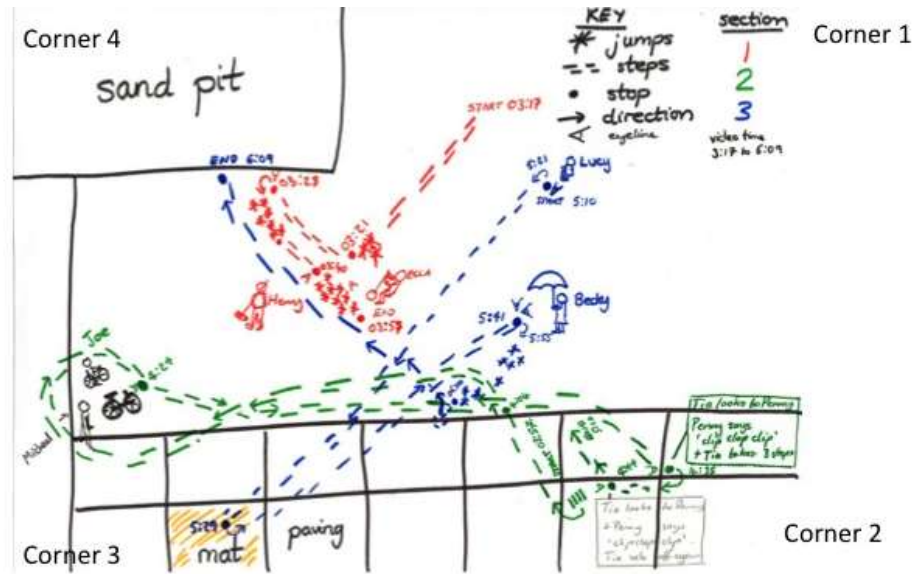 Corner 4
Corner 1
Corner 3
Corner 2
KEY
jumps
steps
stop
direction
eyeline
section
1
2
3
video time
3:17 to 6:09
sand pit
START 03:17
END 6:09
03:25
03:21
Ella
Henry
END
03:57
5:21
Lucy
START 5:10
Becky
5:41
5:55
Joe
4:24
Michael
5:29
mat
paving
Tia looks to Penny
Penny says
'clip clop clip'
+ Tia takes 3 steps
4:35
Tia looks to Penny
+ Penny says
'clip clop clip'